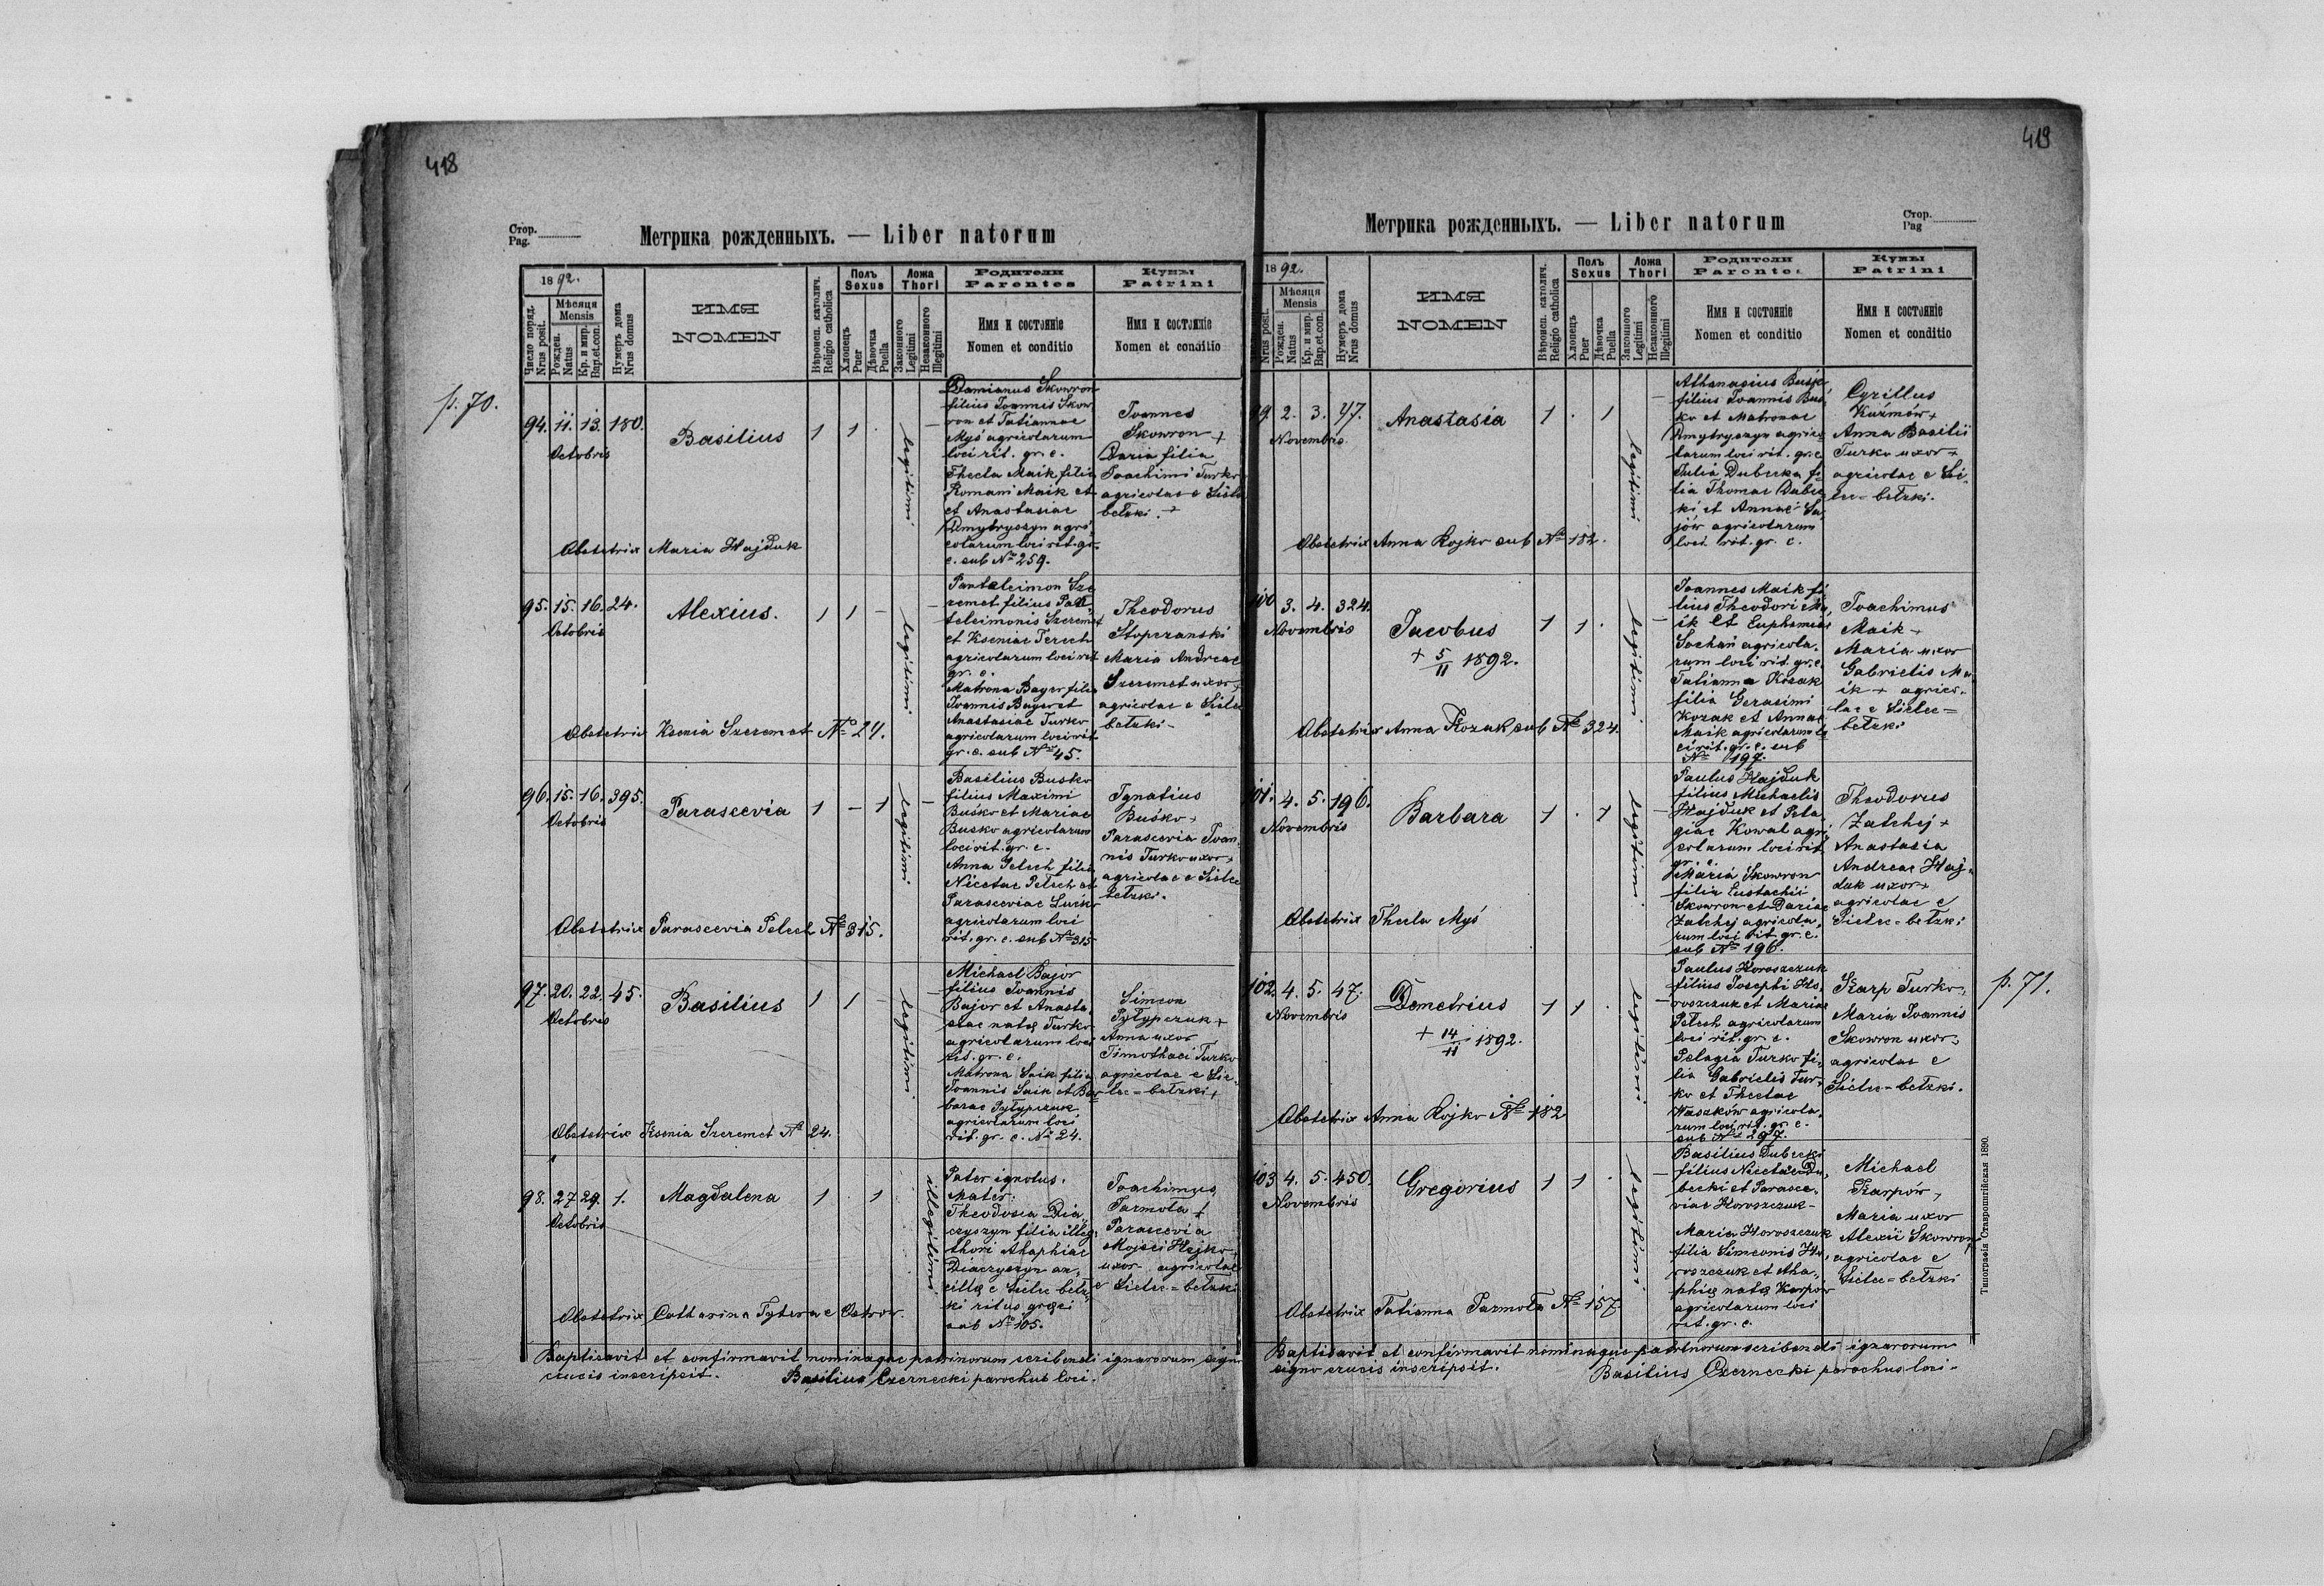 418
p. 70.
Стор.
Pag.
Метрика рожденныхъ. — Liber natorum
1892.
Число поряд.
Nrus posit.
Мѣсяця
Mensis
Рожден.
Natus
Кр. и мир.
Bap.et.con.
Нумеръ дома
Nrus domus
ИМЯ
NOMEN
Вѣроисп. католич.
Religio catholica
Полъ
Sexus
Хлопець
Puer
Дѣвочка
Puella
Ложа
Thori
Законного
Legitimi
Незаконного
Illegitimi
Родители
Parentes
Имя и состояніе
Nomen et conditio
Кумы
Patrini
Имя и состояніе
Nomen et conditio
94. 11. 13. 180.
Octobris
Basilius
1 1 .
legitimi
Damianus Skowron
filius Joannis Skow
ron et Tatiannae
Myś agricolarum
loci rit. gr. c.
Thecla Maik filia
Romani Maik et
et Anastasiae
Dmytryszyn agri
colarum loci rit. gr.
c. sub No 259.
Joannes
Skowron +
Daria filia
Joachimi Turko
agricolae e Siele
bełzki. +
Obstetrix Maria Hajduk
95. 15. 16. 24.
Octobris
Alexius.
1 1 –
legitimi
Pantaleimon Sze
remet filius Pan
teleimonis Szeremet
et Kseniae Terech
agricolarum loci rit
gr. c.
Matrona Bayer filia
Joannis Bayer et
Anastasiae Turko
agricolarum loci rit
gr. c. sub No 45.
Theodorus
Stopczanski
Maria Andreae
Szeremet uxor +
agricolae e Sielec
bełzki –
Obstetrix Ksenia Szeremet No 24.
96. 15. 16. 395.
Octobris
Parascevia
1 – 1
legitimi
Basilius Busko
filius Maximi
Buśko et Mariae
Busko agricolarum
loci rit. gr. c.
Anna Pelech filia
Nicetae Pelech et
Parasceviae Lucko
agricolarum loci
rit. gr. c. sub No 315
Ignatius
Buśko +
Parascevia Joan
nis Turko uxor +
agricolae e Sielec
bełzki.
Obstetrix Parascevia Pelech No 315.
97. 20. 22. 45.
Octobris
Basilius
1 1 –
legitimi
Michael Bajor
filius Joannis
Bajor et Anasta
siae natæ Turko
agricolarum loci
rit. gr. c.
Matrona Saik filia
Joannis Saik et Bar
barae Pyłypczuk
agricolarum loci
rit. gr. c. No 24.
Simeon
Pyłypczuk +
Anna uxor
Timothaei Turko
agricolae e Sie-
lec = bełzki +
Obstetrix Ksenia Szeremet No 24.
98. 27 29. 1.
Octobris
Magdalena
1 . 1
illegitimi
Pater ignotus.
Mater:
Theodosia Dia
czyszyn filia illeg.
thori Ahaphiae
Diaczyszyn an-
cillæ e Sielec bełz
ki ritus græci
sub No 105.
Joachimus
Jarmoła +
Parascevia
Mojsei Hojko +
uxor agricolae
e Sielec = bełzki
Obstetrix Catharina Tytera e Ostrow.
Baptisavit et confirmavit nominaque patrinorum scribendi ignarorum signo
crucis inscripsit. Basilius Czernecki parochus loci.
419
Метрика рожденныхъ. — Liber natorum
Стор.
Pag
1892.
Nrus posit.
Мѣсяця
Mensis
Рожден.
Natus
Кр. и мир.
Bap.et.con.
Нумеръ дома
Nrus domus
ИМЯ
NOMEN
Вѣроисп. католич.
Religio catholica
Полъ
Sexus
Хлопець
Puer
Дѣвочка
Puella
Ложа
Thori
Законного
Legitimi
Незаконного
Illegitimi
Родители
Parentes
Имя и состояніе
Nomen et conditio
Кумы
Patrini
Имя и состояніе
Nomen et conditio
99. 2. 3. 47.
Novembris
Anastasia
1 . 1
legitimi
Athanasius Buśk
filius Joannis Bus
ko et Matronae
Dmytryszyn agrico
larum loci rit. gr. c
Julia Dubecka fi
lia Thomae Dubec
ki et Annae Sa
jów agricolarum
loci rit. gr. c.
Cyrillus
Kuźmów +
Anna Basilii
Turko uxor +
agricolae e Si
lec = bełzki.
Obstetrix Anna Rojko sub No 182.
100 3. 4. 324.
Novembris
Jacobus
+ 5/11 1892.
1 1 .
legitimi
Joannes Maik fi
lius Theodori Ma
ik et Euphemiae
Sochan agricola.
rum loci rit. gr. c.
Tatianna Kozak
filia Gerasimi
Kozak et Annae
Maik agricolarum lo
ci rit. gr. c. sub
No 197.
Joachimus
Maik +
Maria uxor
Gabrielis Ma
ik + agrico.
lae e Sielec =
bełzki
Obstetrix Anna Kozak sub No 324.
101. 4. 5. 196.
Novembris
Barbara
1 . 1
legitimi
Paulus Hajduk
filius Michaelis
Hajduk et Pela
giae Kowal agri
colarum loci rit
gr. c.
Maria Skowron
filia Eustachii
Skowron et Dariae
Zatchej agricola.
rum loci rit gr. c.
sub No 196.
Theodorus
Zatchej +
Anastasia
Andreae Haj-
duk uxor +
agricolae e
Sielec = bełzki
Obstetrix Thecla Myś
102. 4. 5. 47.
Novembris
Demetrius
+ 14/11 1892.
1 1 .
legitimi
Paulus Horoszczuk
filius Josephi Ho.
roszczuk et Mariae
Pelech agricolarum
loci rit. gr. c.
Pelagia Turko fi-
lia Gabrielis Tur-
ko et Theclae
Waszków agricola.
rum loci rit. gr. c.
sub No 297.
Karp Turko +
Maria Joannis
Skowron uxor +
agricolae e
Sielec = bełzki.
p. 71.
Obstetrix Anna Rojko No 182
103 4. 5. 450.
Novembris
Gregorius
1 1 .
legitimi
Basilius Dubecki
filius Nicetae Du
becki et Parasce.
viae Horoszczuk –
Maria Horoszczuk
filia Simeonis Ho
roszczuk et Aha-
phiæ natæ Karpow
agricolarum loci
rit. gr. c.
Michael
Karpów +
Maria uxor
Alexii Skowron
agricolae e
Sielec = bełzki
Obstetrix Tatianna Jarmoła No 157
Baptisavit et confirmavit nominaque patrinorum scribendi ignarorum
signo crucis inscripsit. Basilius Czernecki parochus loci –
Типографія Ставропигійская 1890.